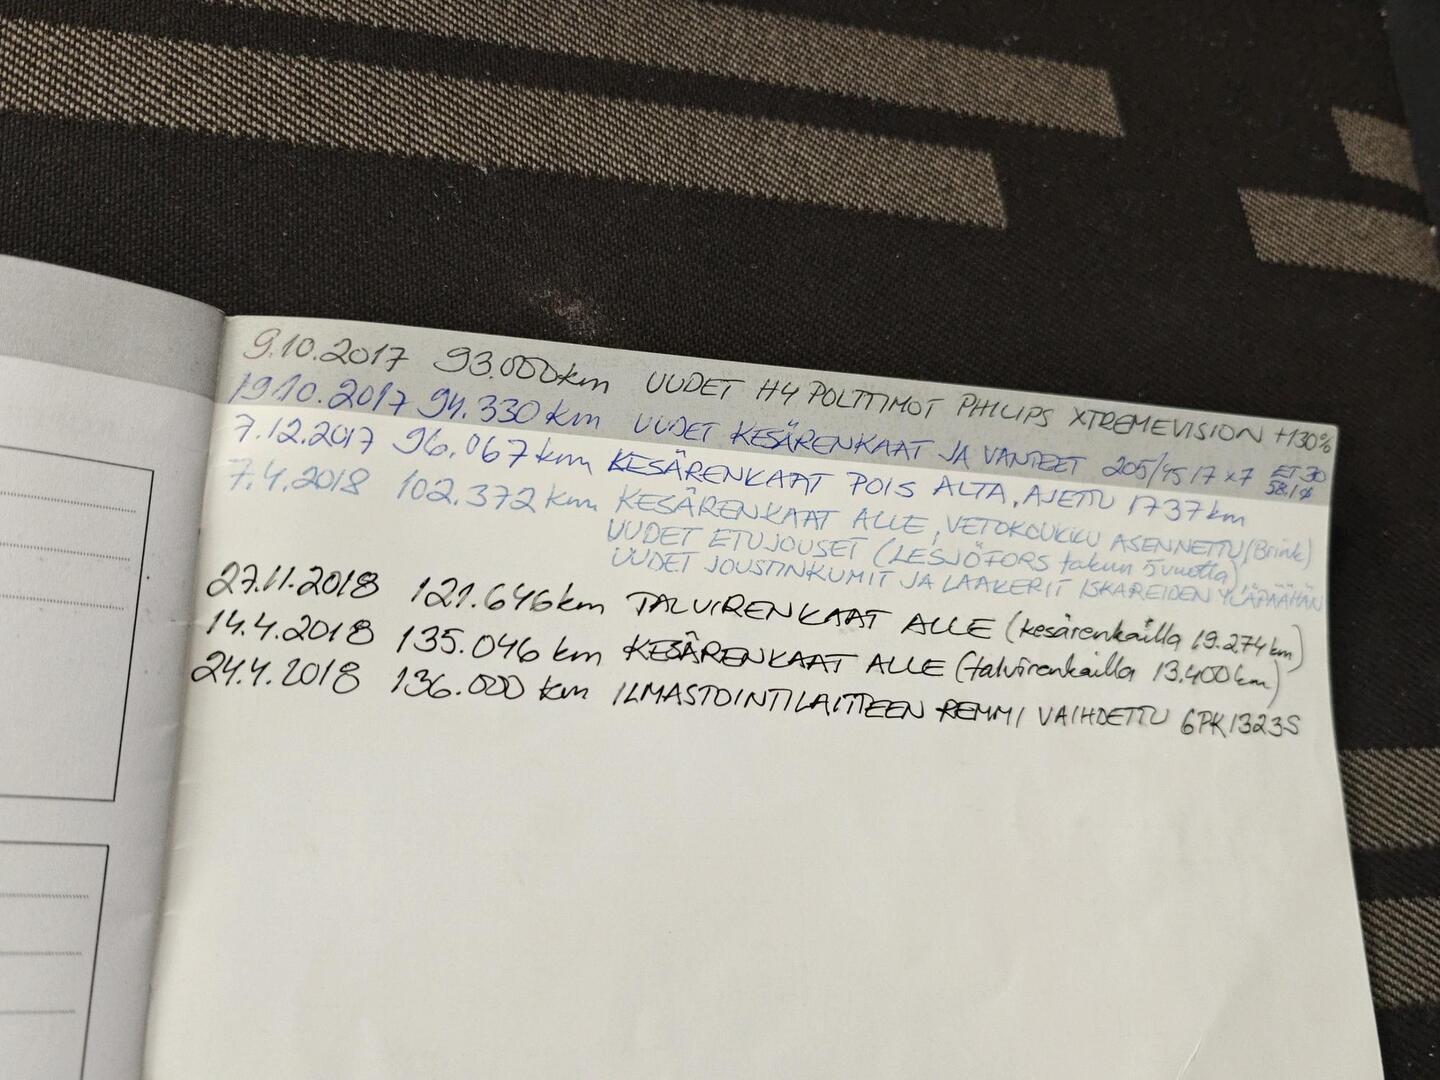 9.10.2017 93.000km UUDET H4 POLTTIMOT PHILIPS XTREMEVISION +130%
19.10.2017 94.330km UUDET KESÄRENKAAT JA VANTEET 205/45 17 x7 ET 30 58.1 ⌀
7.12.2017 96.067km KESÄRENKAAT POIS ALTA, AJETTU 1737km
7.4.2018 102.372km KESÄRENKAAT ALLE, VETOKOUKKU ASENNETTU (Brink)
UUDET ETUJOUSET (LESJÖFORS takuu 5 vuotta)
UUDET JOUSTINKUMIT JA LAAKERIT ISKAREIDEN YLÄPÄÄHÄN
27.11.2018 121.646km TALVIRENKAAT ALLE (kesärenkailla 19.274km)
14.4.2018 135.046km KESÄRENKAAT ALLE (talvirenkailla 13.400km)
24.4.2018 136.000 km ILMASTOINTILAITTEEN REMMI VAIHDETTU 6PK1323S